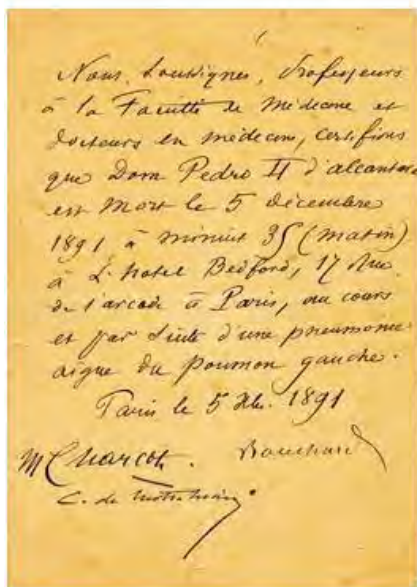 Nous, soussignés, Professeurs
à la Faculté de Médecine et
docteurs en médecine, certifions
que Dom Pedro II d'alcantara
est Mort le 5 décembre
1891 à minuit 35 (matin)
à L'hotel Bedford, 17 Rue
de l'arcade à Paris, au cours
et par suite d'une pneumonie
aigue du poumon gauche.
Paris le 5 Xbr. 1891
M Charcot. Bouchard
C. de